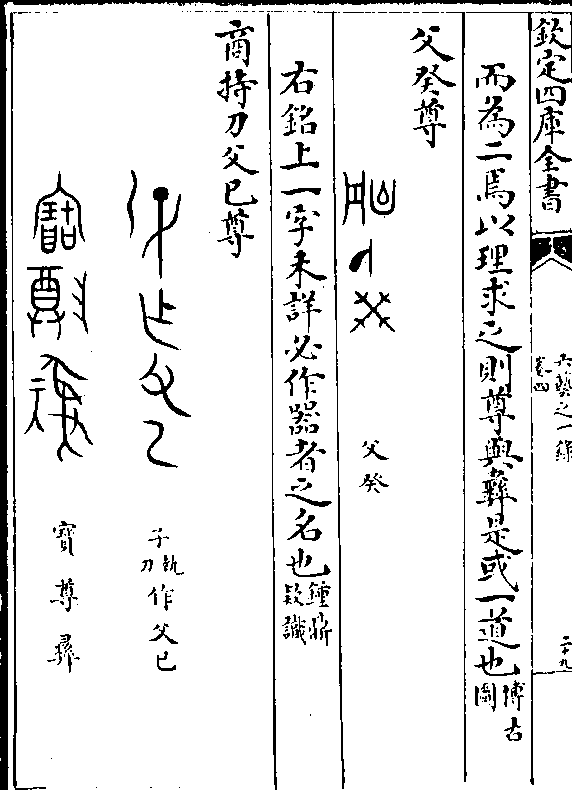 欽定四庫全書
六藝之一錄
卷四
二十九
而為二焉以理求之則尊與彝是或一道也博古圖
父癸尊
父癸
右銘上一字未詳必作器者之名也鍾鼎欵識
商持刀父巳尊
子執刀作父巳
寶尊彞